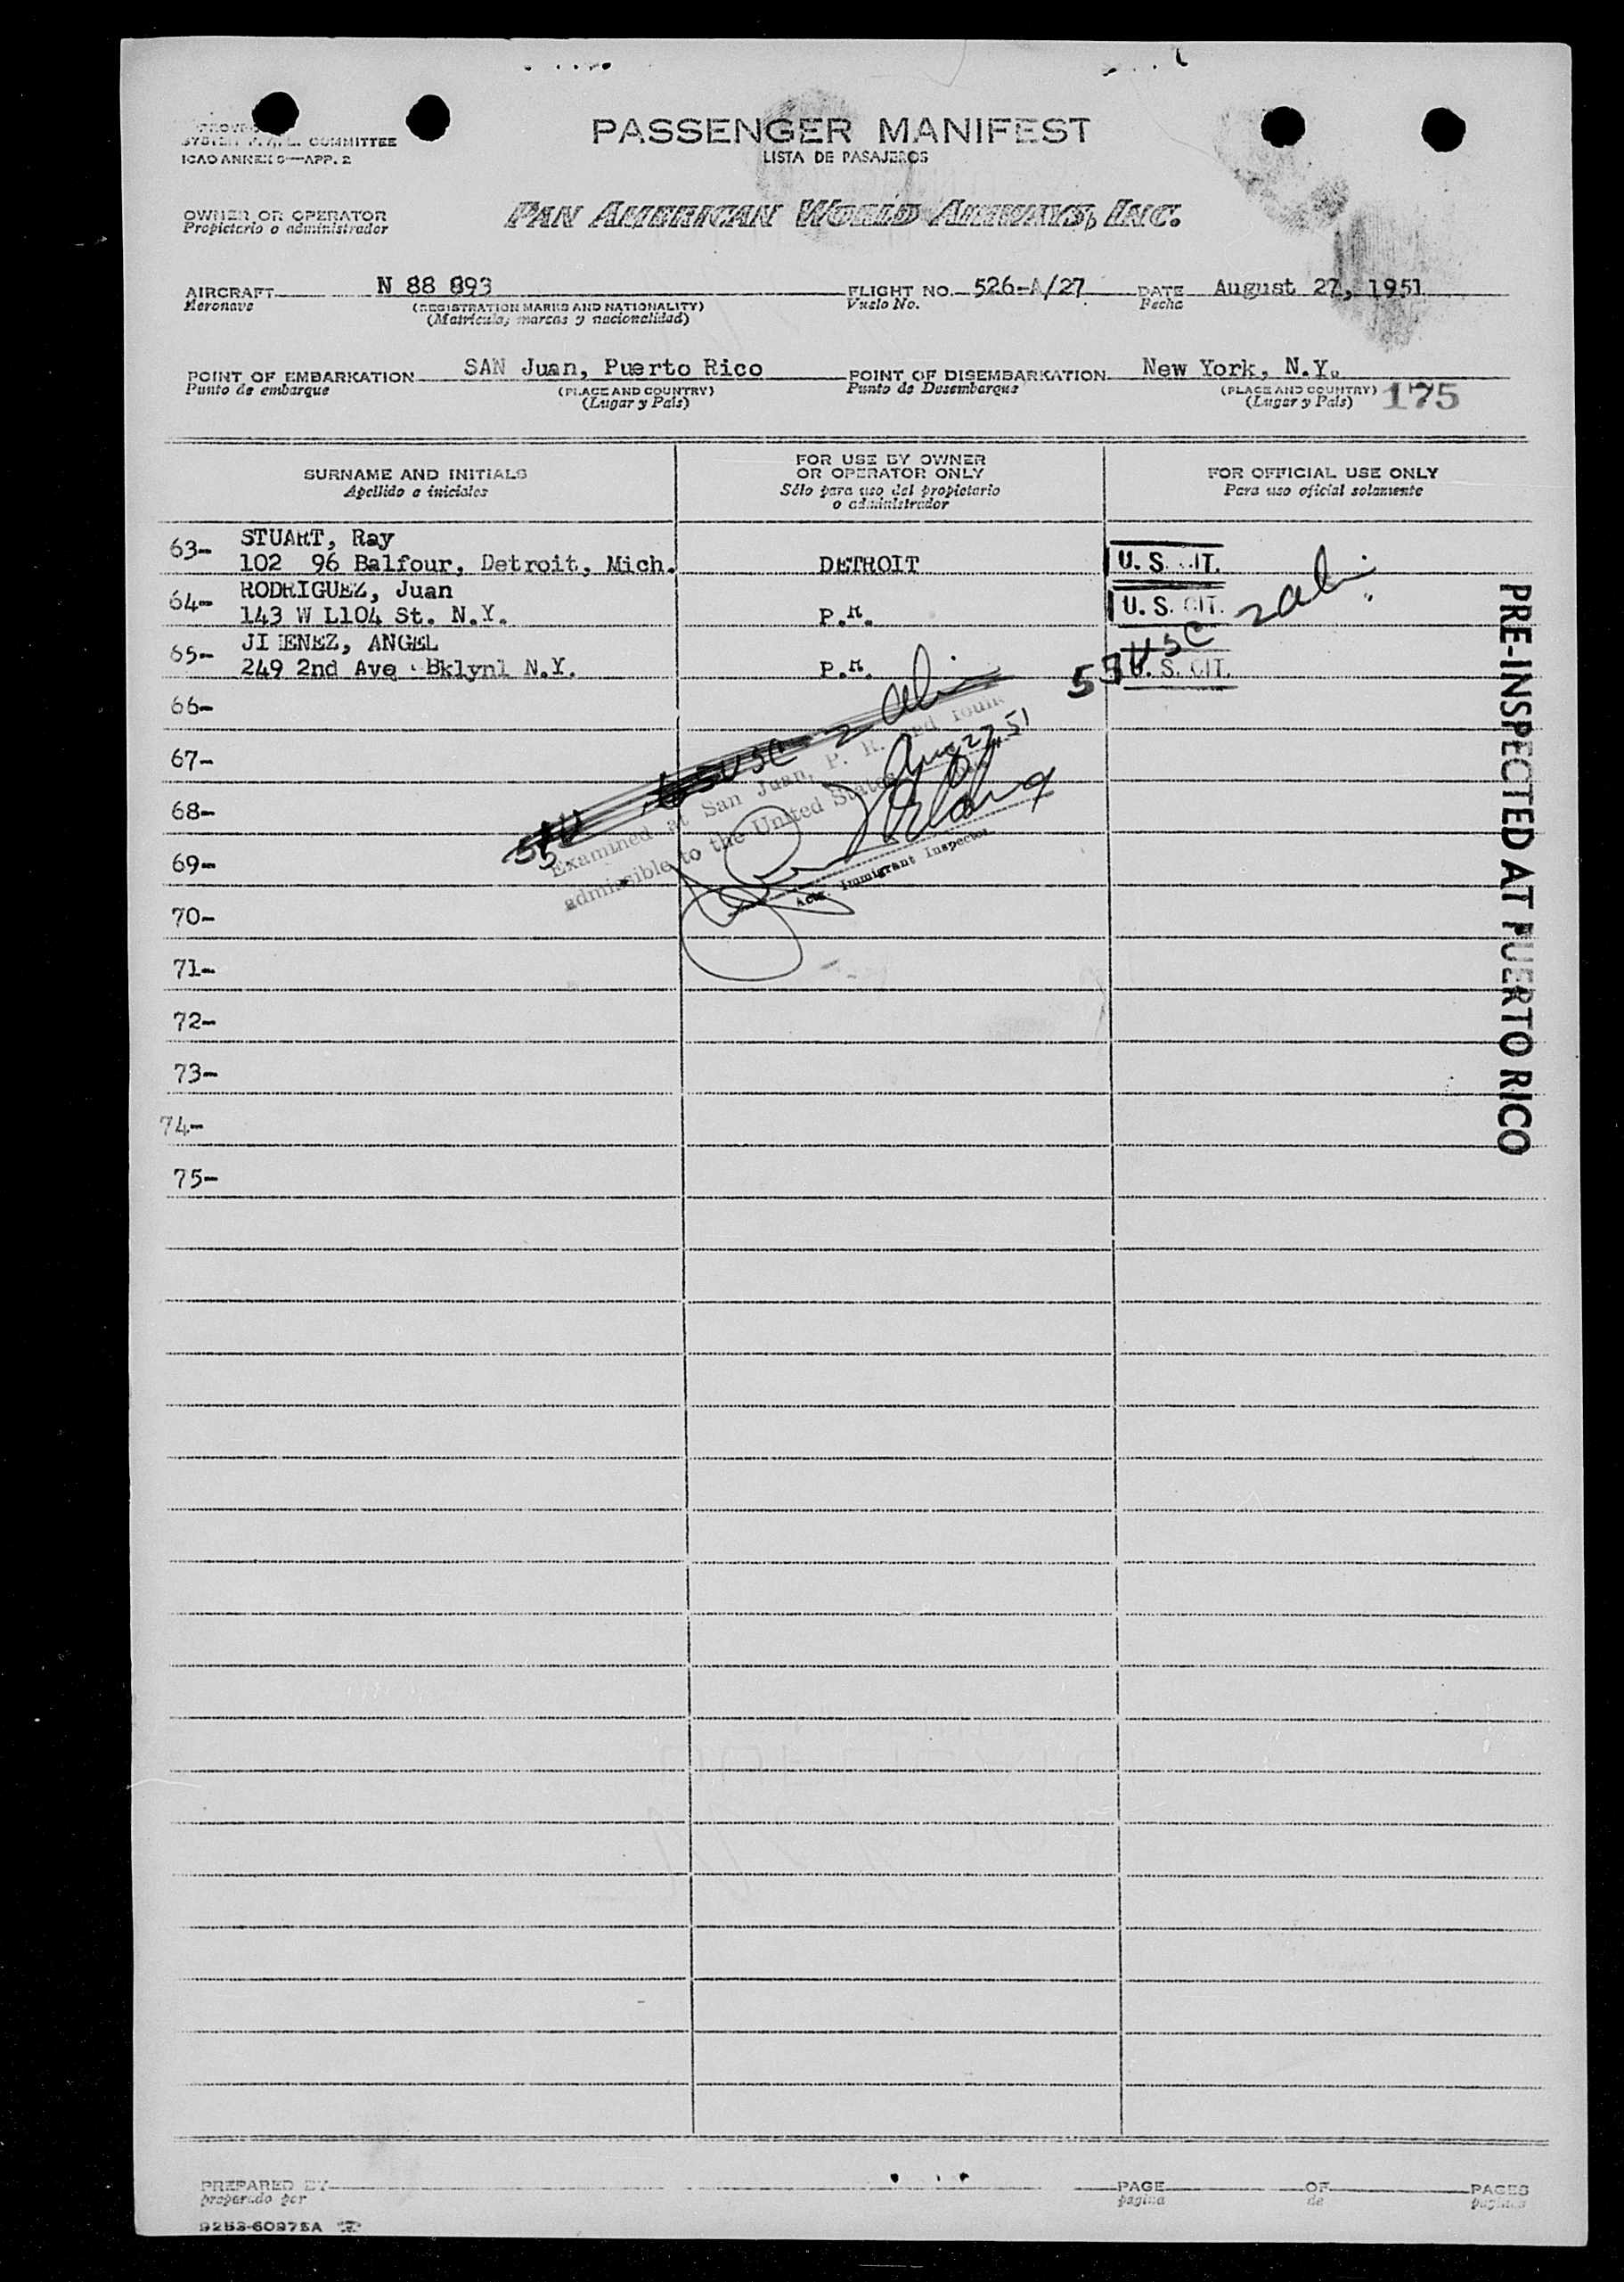 PASSENGER MANIFEST
COMMITTEE
LISTA DE PASAJEROS
ICAO ANNEX 9—APP. 2
OWNER OR OPERATOR
Propietario o administrador
PAN AMERICAN WORLD AIRWAYS, INC.
AIRCRAFT N 88 893 FLIGHT NO. 526-A/27 DATE August 27, 1951
Aeronave (REGISTRATION MARKS AND NATIONALITY) Vuelo No. Fecha
(Matrícula, marcas y nacionalidad)
POINT OF EMBARKATION SAN Juan, Puerto Rico POINT OF DISEMBARKATION New York, N.Y.
Punto de embarque (PLACE AND COUNTRY) Punto de Desembarque (PLACE AND COUNTRY) 175
(Lugar y País) (Lugar y País)
SURNAME AND INITIALS FOR USE BY OWNER OR OPERATOR ONLY FOR OFFICIAL USE ONLY
Apellido e iniciales Sólo para uso del propietario o administrador Para uso oficial solamente
63- STUART, Ray
102 96 Balfour, Detroit, Mich. DETROIT U. S. IT.
64- RODRIGUEZ, Juan
143 W L104 St. N.Y. P.R. U. S. CIT.
65- JI ENEZ, ANGEL
249 2nd Ave Bklynl N.Y. P.R. U. S. CIT.
57 USC 2 ali
66-
67-
68-
69-
70-
71-
72-
73-
74-
75-
USC 2 ali
Examined at San Juan, P. R. and found
admissible to the United States
Aug 27, 51
Actg. Immigrant Inspector
PRE-INSPECTED AT PUERTO RICO
PREPARED BY PAGE OF PAGES
preparado por página de páginas
9253-60975A